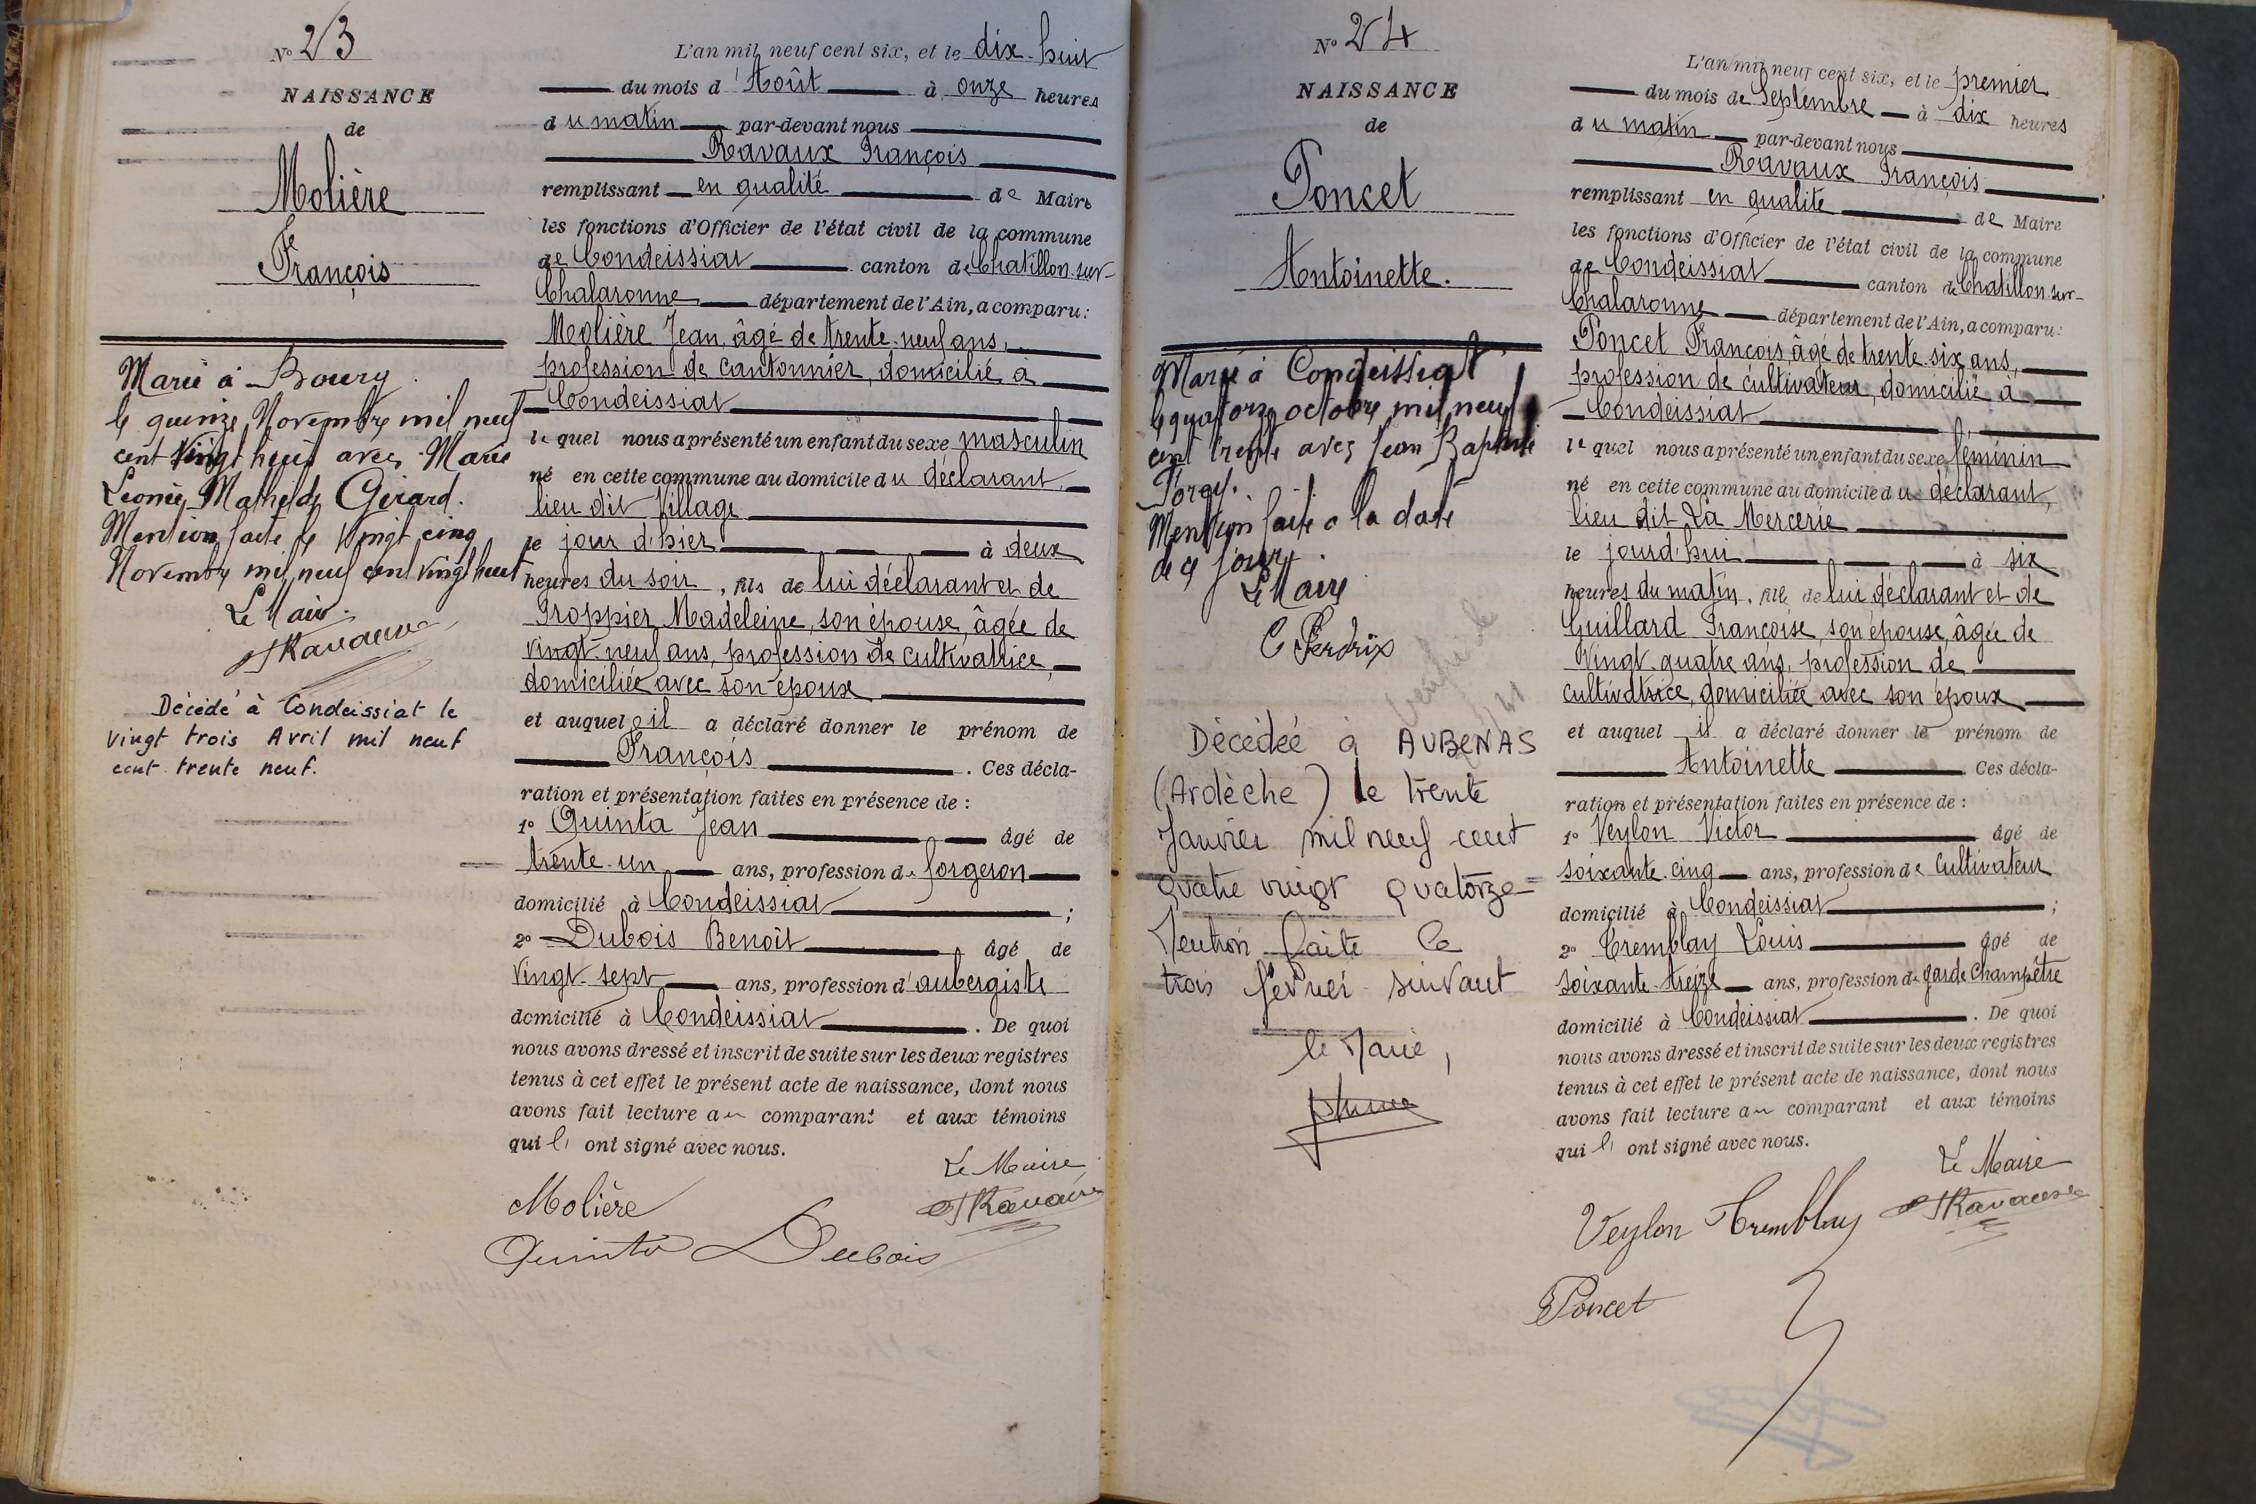 N° 23
NAISSANCE
de
Molière
François
Marié à Bourg
le quinze Novembre mil neuf
cent vingt huit avec Marie
Léonie Mathilde Girard.
Mention faite le vingt cinq
Novembre mil neuf cent vingt huit
Le Maire.
Ravaux
Décédé à Condeissiat le
vingt trois Avril mil neuf
cent trente neuf.
L'an mil neuf cent six, et le dix-huit
du mois d'Août à onze heures
du matin par-devant nous
Ravaux François
remplissant en qualité de Maire
les fonctions d'Officier de l'état civil de la commune
de Condeissiat canton de Chatillon-sur-
Chalaronne département de l'Ain, a comparu:
Molière Jean, âgé de trente-neuf ans,
profession de cantonnier, domicilié à
Condeissiat
lequel nous a présenté un enfant du sexe masculin
né en cette commune au domicile du déclarant,
lieu dit Village
le jour d'hier à deux
heures du soir, fils de lui déclarant et de
Proppier Madeleine, son épouse, âgée de
vingt-neuf ans, profession de cultivatrice,
domiciliée avec son époux
et auquel il a déclaré donner le prénom de
François. Ces décla-
ration et présentation faites en présence de:
1° Quinta Jean âgé de
trente-un ans, profession de forgeron
domicilié à Condeissiat;
2° Dubois Benoît âgé de
vingt-sept ans, profession d'aubergiste
domicilié à Condeissiat. De quoi
nous avons dressé et inscrit de suite sur les deux registres
tenus à cet effet le présent acte de naissance, dont nous
avons fait lecture au comparant et aux témoins
qui l' ont signé avec nous.
Le Maire
Molière Ravaux
Quinta Dubois
N° 24
NAISSANCE
de
Poncet
Antoinette.
Marié à Condeissiat
le quatorze octobre mil neuf
cent trente avec Jean Baptiste
Mention faite à la date
de ce jour.
Le Maire
C Perdrix
Décédée à AUBENAS
(Ardèche) le trente
Janvier mil neuf cent
quatre vingt quatorze
Mention faite le
trois février suivant
le Maire,
L'an mil neuf cent six, et le premier
du mois de Septembre à dix heures
du matin par-devant nous
Ravaux François
remplissant en qualité de Maire
les fonctions d'Officier de l'état civil de la commune
de Condeissiat canton de Chatillon-sur-
Chalaronne département de l'Ain, a comparu:
Poncet François, âgé de trente-six ans,
profession de cultivateur, domicilié à
Condeissiat
lequel nous a présenté un enfant du sexe féminin
né en cette commune au domicile du déclarant,
lieu dit La Mercerie
le jourd'hui à six
heures du matin, fille de lui déclarant et de
Guillard Françoise son épouse, âgée de
vingt-quatre ans, profession de
cultivatrice, domiciliée avec son époux
et auquel il a déclaré donner le prénom de
Antoinette Ces décla-
ration et présentation faites en présence de:
1° Veylon Victor âgé de
soixante-cinq ans, profession de cultivateur
domicilié à Condeissiat;
2° Tremblay Louis âgé de
soixante-treize ans, profession de garde champêtre
domicilié à Condeissiat. De quoi
nous avons dressé et inscrit de suite sur les deux registres
tenus à cet effet le présent acte de naissance, dont nous
avons fait lecture au comparant et aux témoins
qui l' ont signé avec nous.
Le Maire
Veylon Tremblay Ravaux
Poncet